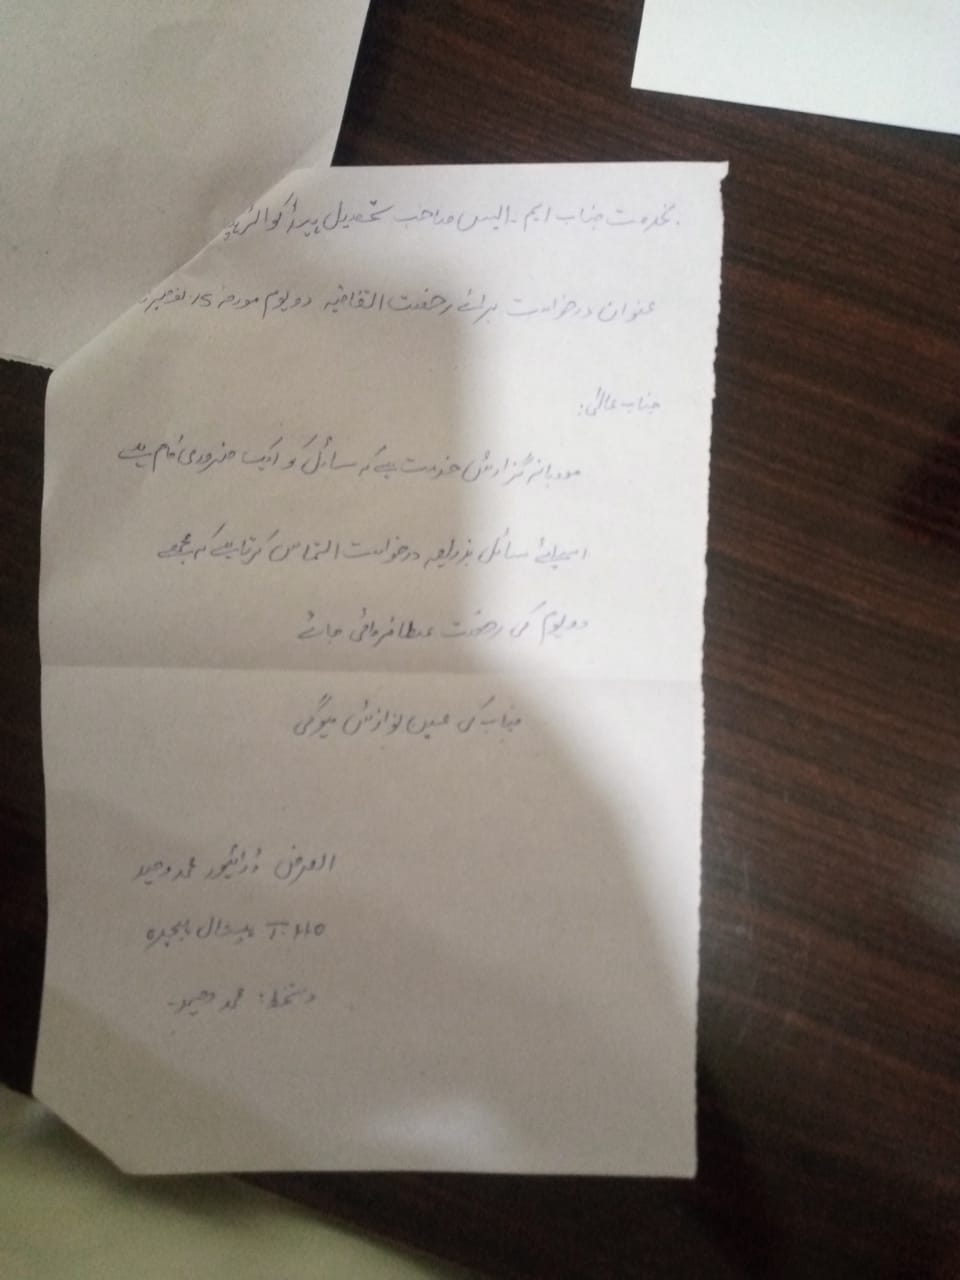 بخدمت جناب ایم۔ایس صاحب تحصیل ہیڈ کوالٹر
عنوان درخواست برائے رخصت اتفاقیہ دو یوم مورخہ 15
جناب عالی:
مودبانہ گزارش خدمت ہے کہ سائل کو ایک ضروری کام ہے
اسلئے سائل بذریعہ درخواست التماس کرتا ہے کہ مجھے
دو یوم کی رخصت عطا فرمائی جائے
جناب کی عین نوازش ہوگی
العرض ڈرائیور محمد وحید
ہسپتال
دستخط: محمد وحید